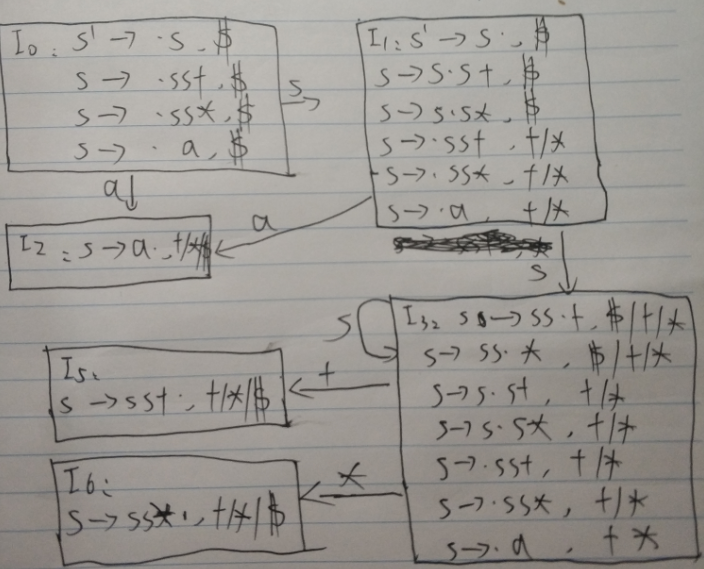 I0: s' → ·s, $
s → ·ss+, $
s → ·ss*, $
s → ·a, $
s
a
I1: s' → s·, $
s → s·s+, $
s → s·s*, $
s → ·ss+, +/*
s → ·ss*, +/*
s → ·a, +/*
a
s
I2: s → a·, +/*/$
s
I3: s → ss·+, $/+/*
s → ss·*, $/+/*
s → s·s+, +/*
s → s·s*, +/*
s → ·ss+, +/*
s → ·ss*, +/*
s → ·a, + *
+
I5:
s → ss+·, +/*/$
*
I6:
s → ss*·, +/*/$